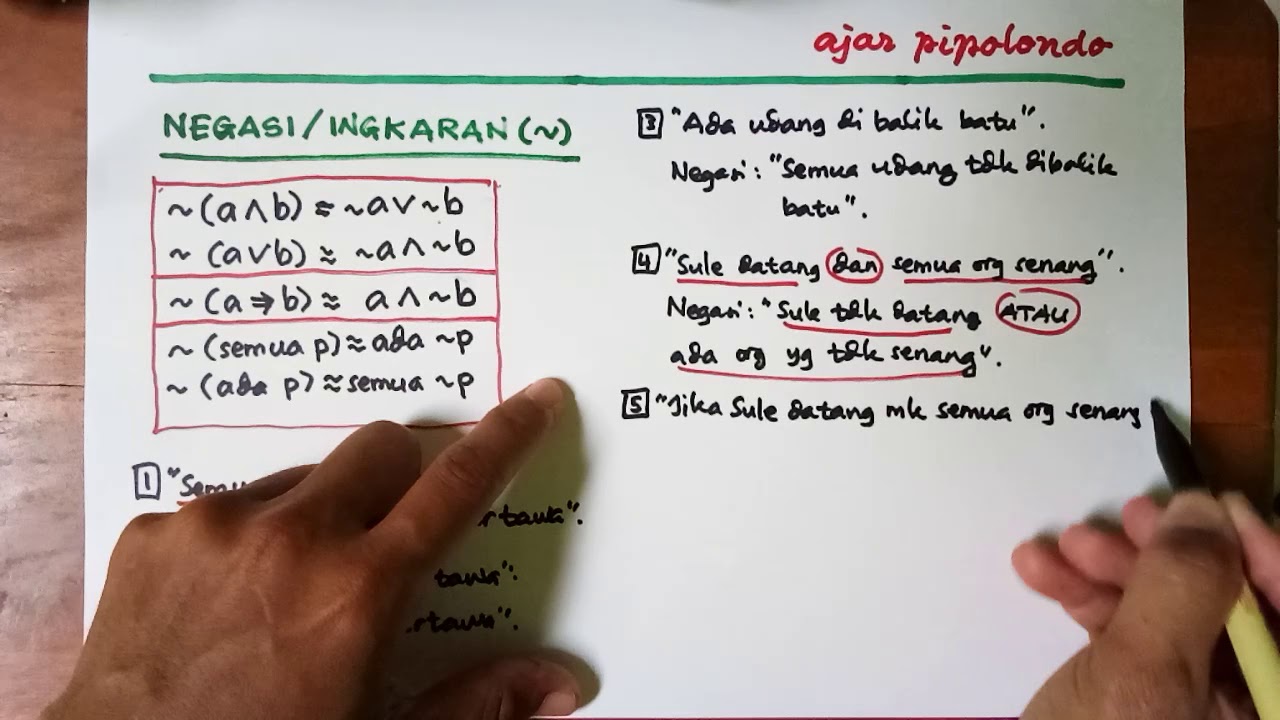 ajar pipolondo
NEGASI/INGKARAN (~)
~(a∧b) ≈ ~a∨~b
~ (a∨b) ≈ ~a∧~b
~ (a⇒b) ≈ a∧~b
~ (semua p) ≈ ada ~p
~ (ada p) ≈ semua ~p
1 "Semu
rtawa".
tawa".
rtawa".
3 "Ada udang di balik batu".
Negasi: "Semua udang tdk dibalik
batu".
4 "Sule datang dan semua org senang".
Negasi: "Sule tdk datang ATAU
ada org yg tdk senang".
5 "Jika Sule datang mk semua org senang